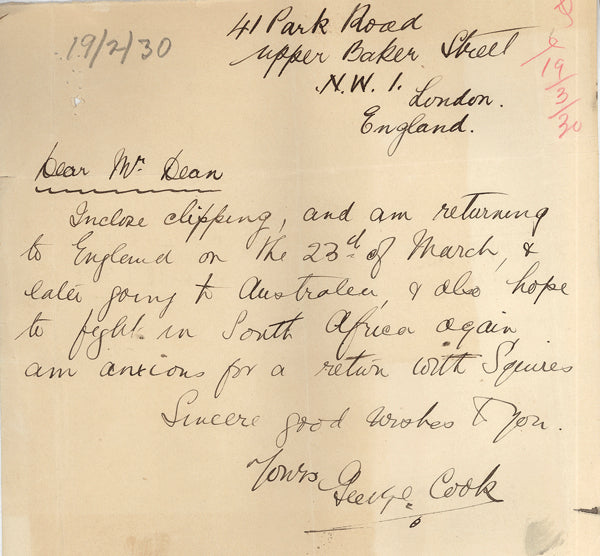 19/2/30
41 Park Road
Upper Baker Street
N.W. 1.
London.
England.
19/3/30
Dear Mr. Dean
Inclose clipping, and am returning
to England on the 23rd of March, &
later going to Australia, & also hope
to fight in South Africa again,
am anxious for a return with Squires
Sincere good wishes to you.
Yours,
George Cook